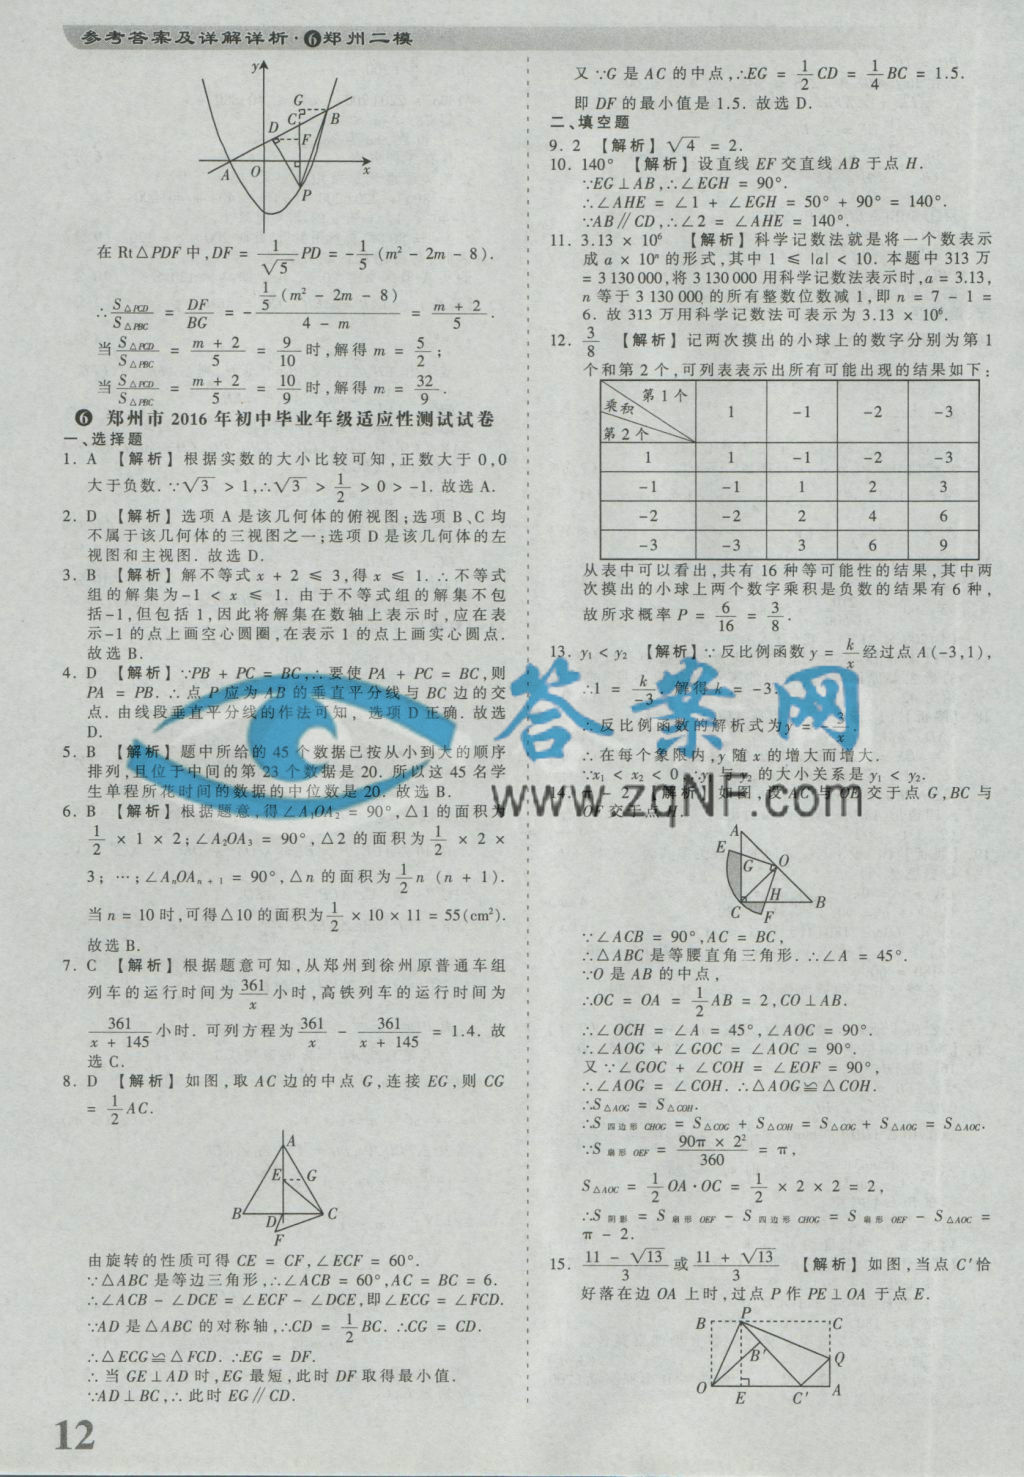 参考答案及详解详析·❻郑州二模
y
G
C
B
D
F
A
O
x
P
在 Rt△PDF 中,DF = 1/√5 PD = -1/5(m² - 2m - 8).
∴ S△PCD/S△PBC = DF/BG = - (1/5(m² - 2m - 8))/(4 - m) = (m + 2)/5.
当 S△PCD/S△PBC = (m + 2)/5 = 9/10 时,解得 m = 5/2;
当 S△PCD/S△PBC = (m + 2)/5 = 10/9 时,解得 m = 32/9.
❻ 郑州市 2016 年初中毕业年级适应性测试试卷
一、选择题
1. A 【解析】根据实数的大小比较可知,正数大于 0,0
大于负数. ∵√3 > 1,∴√3 > 1/2 > 0 > -1. 故选 A.
2. D 【解析】选项 A 是该几何体的俯视图;选项 B、C 均
不属于该几何体的三视图之一;选项 D 是该几何体的左
视图和主视图. 故选 D.
3. B 【解析】解不等式 x + 2 ≤ 3,得 x ≤ 1. ∴不等式
组的解集为 -1 < x ≤ 1. 由于不等式组的解集不包
括 -1,但包括 1,因此将解集在数轴上表示时,应在表
示 -1 的点上画空心圆圈,在表示 1 的点上画实心圆点.
故选 B.
4. D 【解析】∵PB + PC = BC,∴要使 PA + PC = BC,则
PA = PB. ∴点 P 应为 AB 的垂直平分线与 BC 边的交
点. 由线段垂直平分线的作法可知, 选项 D 正确. 故选
D.
5. B 【解析】题中所给的 45 个数据已按从小到大的顺序
排列,且位于中间的第 23 个数据是 20. 所以这 45 名学
生单程所花时间的数据的中位数是 20. 故选 B.
6. B 【解析】根据题意,得∠A₁OA₂ = 90°,△1 的面积为
1/2 × 1 × 2;∠A₂OA₃ = 90°,△2 的面积为 1/2 × 2 ×
3; …;∠AₙOAₙ₊₁ = 90°,△n 的面积为 1/2 n (n + 1).
当 n = 10 时,可得△10 的面积为 1/2 × 10 × 11 = 55(cm²).
故选 B.
7. C 【解析】根据题意可知,从郑州到徐州原普通车组
列车的运行时间为 361/x 小时,高铁列车的运行时间为
361/(x + 145) 小时. 可列方程为 361/x - 361/(x + 145) = 1.4. 故
选 C.
8. D 【解析】如图,取 AC 边的中点 G,连接 EG,则 CG
= 1/2 AC.
A
E
G
B
D
C
F
由旋转的性质可得 CE = CF,∠ECF = 60°.
∵△ABC 是等边三角形,∴∠ACB = 60°,AC = BC = 6.
∴∠ACB - ∠DCE = ∠ECF - ∠DCE,即∠ECG = ∠FCD.
∵AD 是△ABC 的对称轴,∴CD = 1/2 BC. ∴CG = CD.
∴△ECG≌△FCD. ∴EG = DF.
∴当 GE⊥AD 时,EG 最短,此时 DF 取得最小值.
∵AD⊥BC,∴此时 EG∥CD.
12
又∵G 是 AC 的中点,∴EG = 1/2 CD = 1/4 BC = 1.5.
即 DF 的最小值是 1.5. 故选 D.
二、填空题
9. 2 【解析】√4 = 2.
10. 140° 【解析】设直线 EF 交直线 AB 于点 H.
∵EG⊥AB,∴∠EGH = 90°.
∴∠AHE = ∠1 + ∠EGH = 50° + 90° = 140°.
∵AB∥CD,∴∠2 = ∠AHE = 140°.
11. 3.13 × 10⁶ 【解析】科学记数法就是将一个数表示
成 a × 10ⁿ 的形式,其中 1 ≤ |a| < 10. 本题中 313 万
= 3 130 000,将 3 130 000 用科学记数法表示时,a = 3.13,
n 等于 3 130 000 的所有整数位数减 1,即 n = 7 - 1 =
6. 故 313 万用科学记数法可表示为 3.13 × 10⁶.
12. 3/8 【解析】记两次摸出的小球上的数字分别为第 1
个和第 2 个,可列表表示出所有可能出现的结果如下:
乘积 第 1 个 第 2 个 1 -1 -2 -3
1 1 -1 -2 -3
-1 -1 1 2 3
-2 -2 2 4 6
-3 -3 3 6 9
从表中可以看出,共有 16 种等可能性的结果,其中两
次摸出的小球上两个数字乘积是负数的结果有 6 种,
故所求概率 P = 6/16 = 3/8.
13. y₁ < y₂ 【解析】∵反比例函数 y = k/x 经过点 A(-3,1),
∴1 = k/-3. 解得 k = -3.
∴反比例函数的解析式为 y = -3/x.
∴在每个象限内,y 随 x 的增大而增大.
∵x₁ < x₂ < 0,∴y₁与 y₂ 的大小关系是 y₁ < y₂.
14. π - 2 【解析】如图,设 AC 与 OE 交于点 G,BC 与
OF 交于点 H.
A
E
G
O
H
C
F
B
∵∠ACB = 90°,AC = BC,
∴△ABC 是等腰直角三角形. ∴∠A = 45°.
∵O 是 AB 的中点,
∴OC = OA = 1/2 AB = 2,CO⊥AB.
∴∠OCH = ∠A = 45°,∠AOC = 90°.
∴∠AOG + ∠GOC = ∠AOC = 90°.
又∵∠GOC + ∠COH = ∠EOF = 90°,
∴∠AOG = ∠COH. ∴△AOG≌△COH.
∴S△AOG = S△COH.
∴S四边形CHOG = S△COG + S△COH = S△COG + S△AOG = S△AOC.
∵S扇形OEF = (90π × 2²)/360 = π,
S△AOC = 1/2 OA·OC = 1/2 × 2 × 2 = 2,
∴S阴影 = S扇形OEF - S四边形CHOG = S扇形OEF - S△AOC =
π - 2.
15. (11 - √13)/3 或 (11 + √13)/3 【解析】如图,当点 C′恰
好落在边 OA 上时,过点 P 作 PE⊥OA 于点 E.
B
P
C
B′
Q
O
E
C′
A
答案网
www.zqNF.com